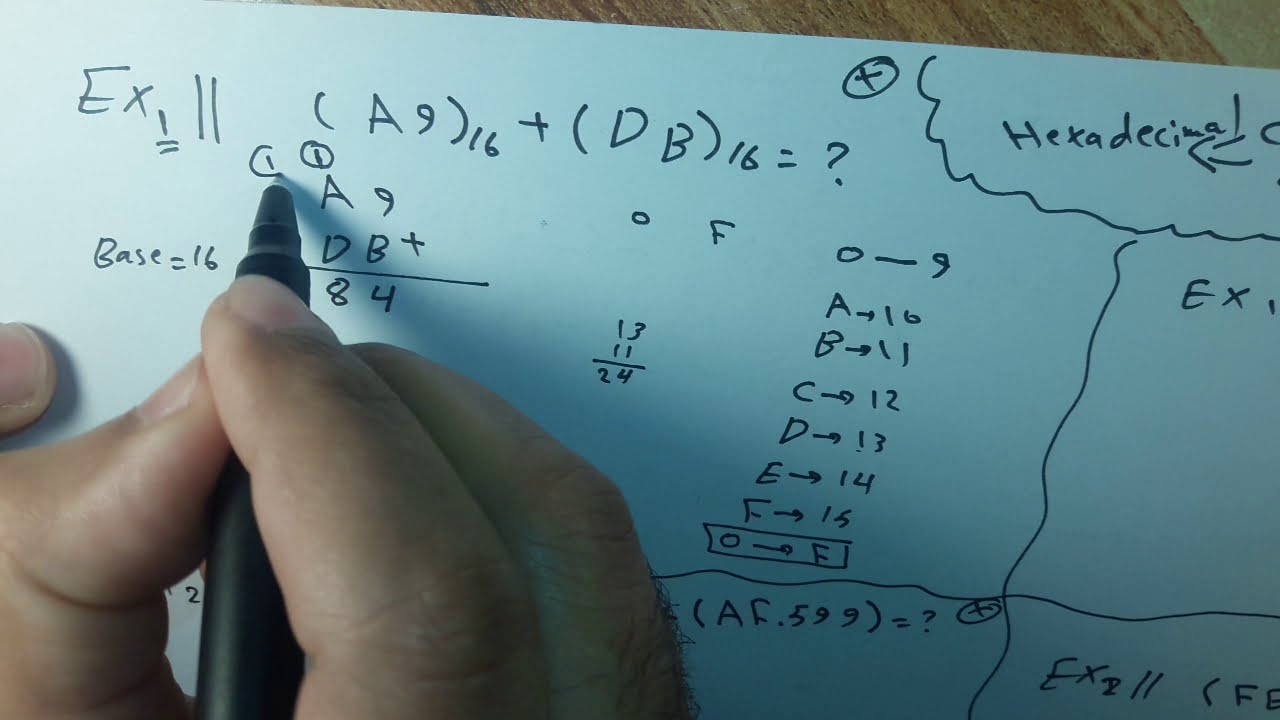 Ex1 || (A9)16 + (DB)16 = ?
⊕
Hexadecimal
1 1
A 9
Base = 16
D B +
8 4
0 F
13
11
24
0 — 9
A → 10
B → 11
C → 12
D → 13
E → 14
F → 15
0 → F
Ex1
2
(AF.599) = ? ⊕
Ex2 // (FE